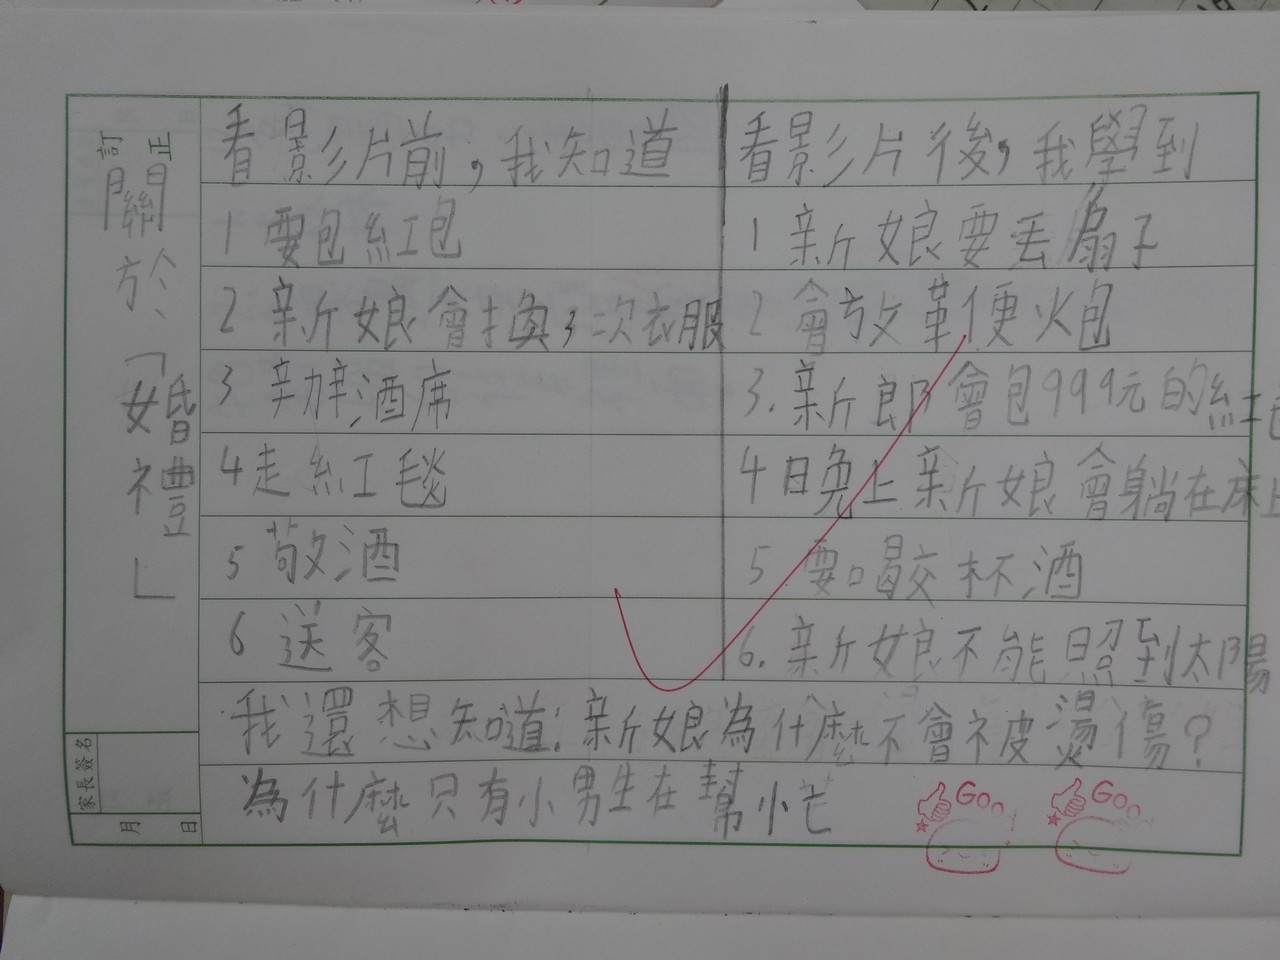 訂正
關於「婚禮」
家長簽名
月 日
看影片前,我知道
1 要包紅包
2 新娘會換3次衣服
3 辦酒席
4走紅毯
5 敬酒
6 送客
看影片後,我學到
1 新娘要丟扇子
2 會放鞭火包
3. 新郎會包999元的紅包
4日晚上新娘會躺在床上
5 要喝交杯酒
6. 新娘不能照到太陽
我還想知道:新娘為什麼不會被燙傷?
為什麼只有小男生在幫忙
Goo
Goo